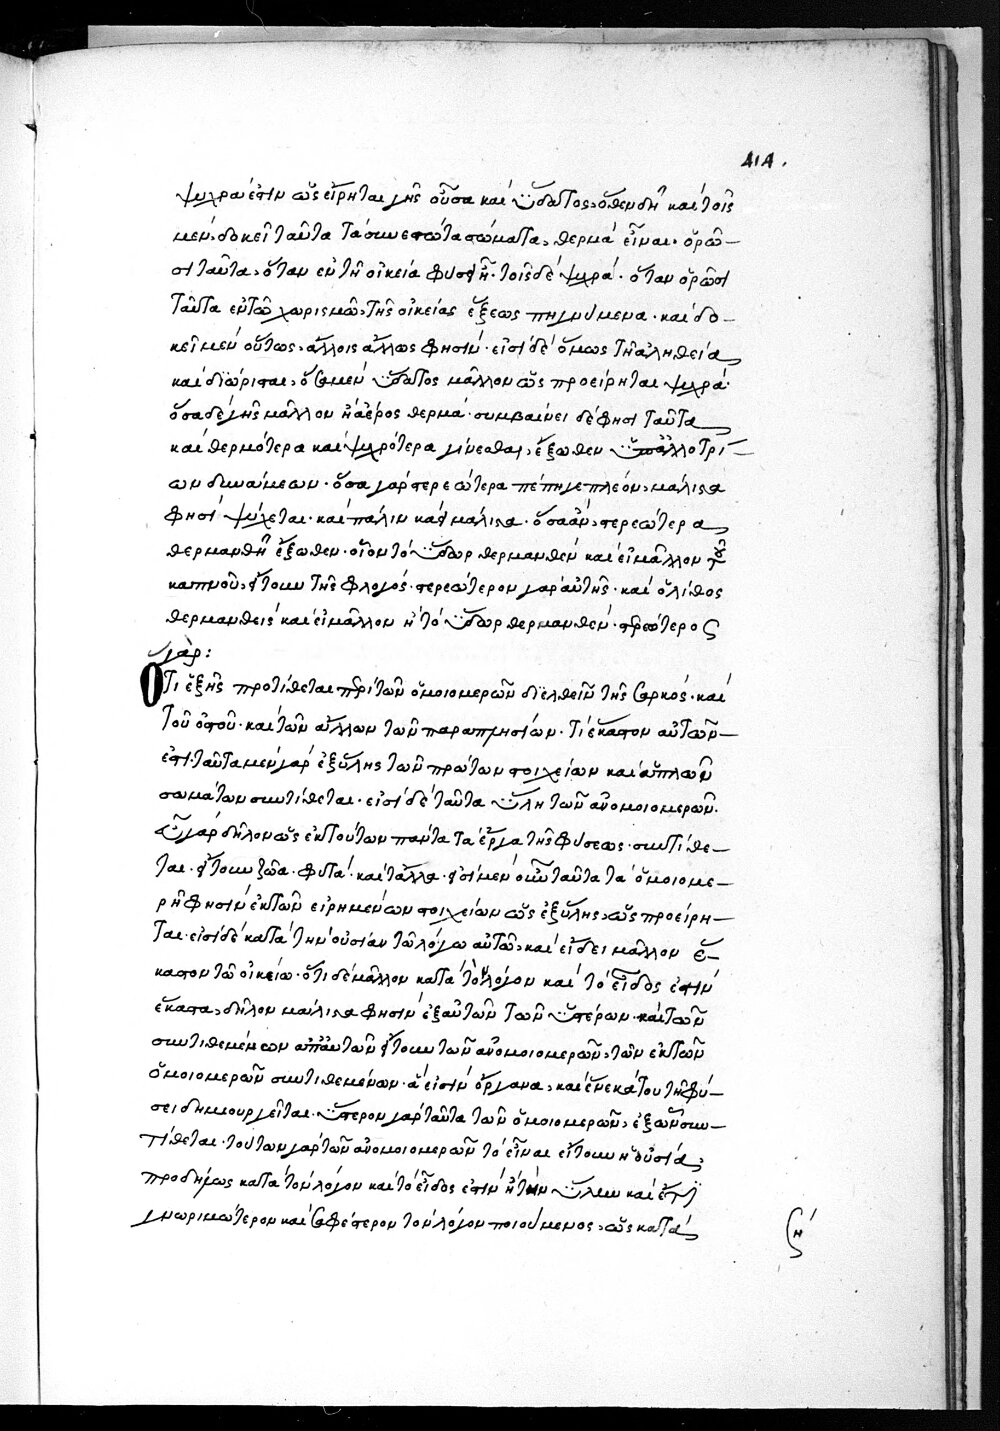 414.
ψυχρά ἐστιν ὡς εἴρηται γῆς οὖσα καὶ ὕδατος, ὅθεν δὴ καὶ τοῖς
μὲν, δοκεῖ ταῦτα τὰ συνεστῶτα σώματα, θερμὰ εἶναι· ὁρῶ–
σι ταῦτα, ὅταν ἐν τῇ οἰκείᾳ φύσει ᾖ· τοῖς δὲ ψυχρά· ὅταν ὁρῶσι
ταῦτα ἐν τῷ χωρισμῷ, τῆς οἰκείας ἕξεως πηγνύμενα· καὶ δο–
κεῖ μὲν οὕτως, ἄλλοις ἄλλως φησίν· εἰσὶ δὲ ὅμως τῇ ἀληθείᾳ
καὶ διώρισται, ὅσα μὲν ὕδατος μᾶλλον ὡς προείρηται ψυχρά·
ὅσα δὲ γῆς μᾶλλον ἢ ἀέρος θερμά· συμβαίνει δέ φησι ταῦτα
καὶ θερμότερα καὶ ψυχρότερα γίνεσθαι, ἔξωθεν ὑπ' ἀλλοτρί–
ων δυνάμεων· ὅσα γὰρ στερεώτερα πέπηγε πλέον, μάλιστα
φησὶ ψύχεται· καὶ πάλιν καίει μάλιστα· ὅσα ἂν, στερεώτερα
θερμανθῇ ἔξωθεν· οἷον τὸ ὕδωρ θερμανθὲν καίει μᾶλλον τοῦ
καπνοῦ, ἤτουν τῆς φλογός· στερεώτερον γὰρ αὐτῆς· καὶ ὁ λίθος
θερμανθεὶς καίει μᾶλλον ἢ τὸ ὕδωρ θερμανθέν· στερεώτερος
γάρ:
Ὅτι ἑξῆς προτίθεται περὶ τῶν ὁμοιομερῶν διελθεῖν τῆς σαρκός· καὶ
τοῦ ὀστοῦ· καὶ τῶν ἄλλων τῶν παραπλησίων· τί ἕκαστον αὐτῶν
ἐστι· ταῦτα μὲν γὰρ ἐξ ὕλης τῶν πρώτων στοιχείων καὶ ἁπλῶν
σωμάτων συντίθεται· εἰσὶ δὲ ταῦτα ὕλη τῶν ἀνομοιομερῶν.
γὰρ δῆλον ὡς ἐκ τούτων πάντα τὰ ἔργα τῆς φύσεως· συντίθε–
ται· ἤτουν ζῷα· φυτά· καὶ τἄλλα· εἰσὶ μὲν οὖν ταῦτα τὰ ὁμοιομε–
ρῆ φησὶν ἐκ τῶν εἰρημένων στοιχείων ὡς ἐξ ὕλης, ὡς προείρη–
ται· εἰσὶ δὲ κατὰ τὴν οὐσίαν τῷ λόγῳ αὐτῶν, καὶ εἴδει μᾶλλον ἕ–
καστον τῷ οἰκείῳ· ὅτι δὲ μᾶλλον κατὰ τὸν λόγον καὶ τὸ εἶδος ἐστὶν
ἕκαστα, δῆλον μάλιστα φησὶν ἐξ αὐτῶν τῶν ὑστέρων· καὶ τῶν
συντιθεμένων ἀπ' αὐτῶν ἤτουν τῶν ἀνομοιομερῶν, τῶν ἐκ τῶν
ὁμοιομερῶν συντιθεμένων· ἅ εἰσιν ὄργανα, καὶ ἕνεκά του τῇ φύ–
σει δημιουργεῖται· ὕστερον γὰρ ταῦτα τῶν ὁμοιομερῶν, ἐξ ὧν συν–
τίθεται· τούτων γὰρ τῶν ἀνομοιομερῶν τὸ εἶναι εἴτουν ἡ οὐσία,
προδήλως κατὰ τὸν λόγον καὶ τὸ εἶδος ἐστὶν ἢ τὴν ὕλην καὶ ἔτι
γνωριμώτερον καὶ σαφέστερον τὸν λόγον ποιούμενος, ὡς κατὰ